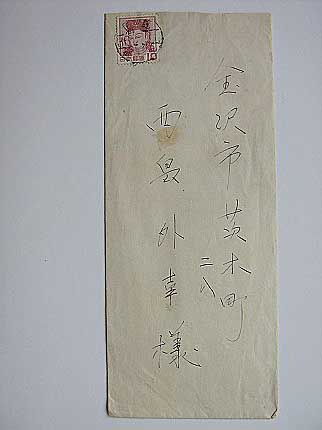 金沢市茨木町
二八
西島外幸様
10